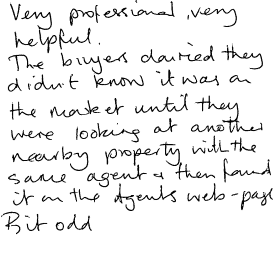 Very professional, very
helpful.
The buyers claimed they
didn't know it was on
the market until they
were looking at another
nearby property with the
same agent & then found
it on the Agents web-page
Bit odd